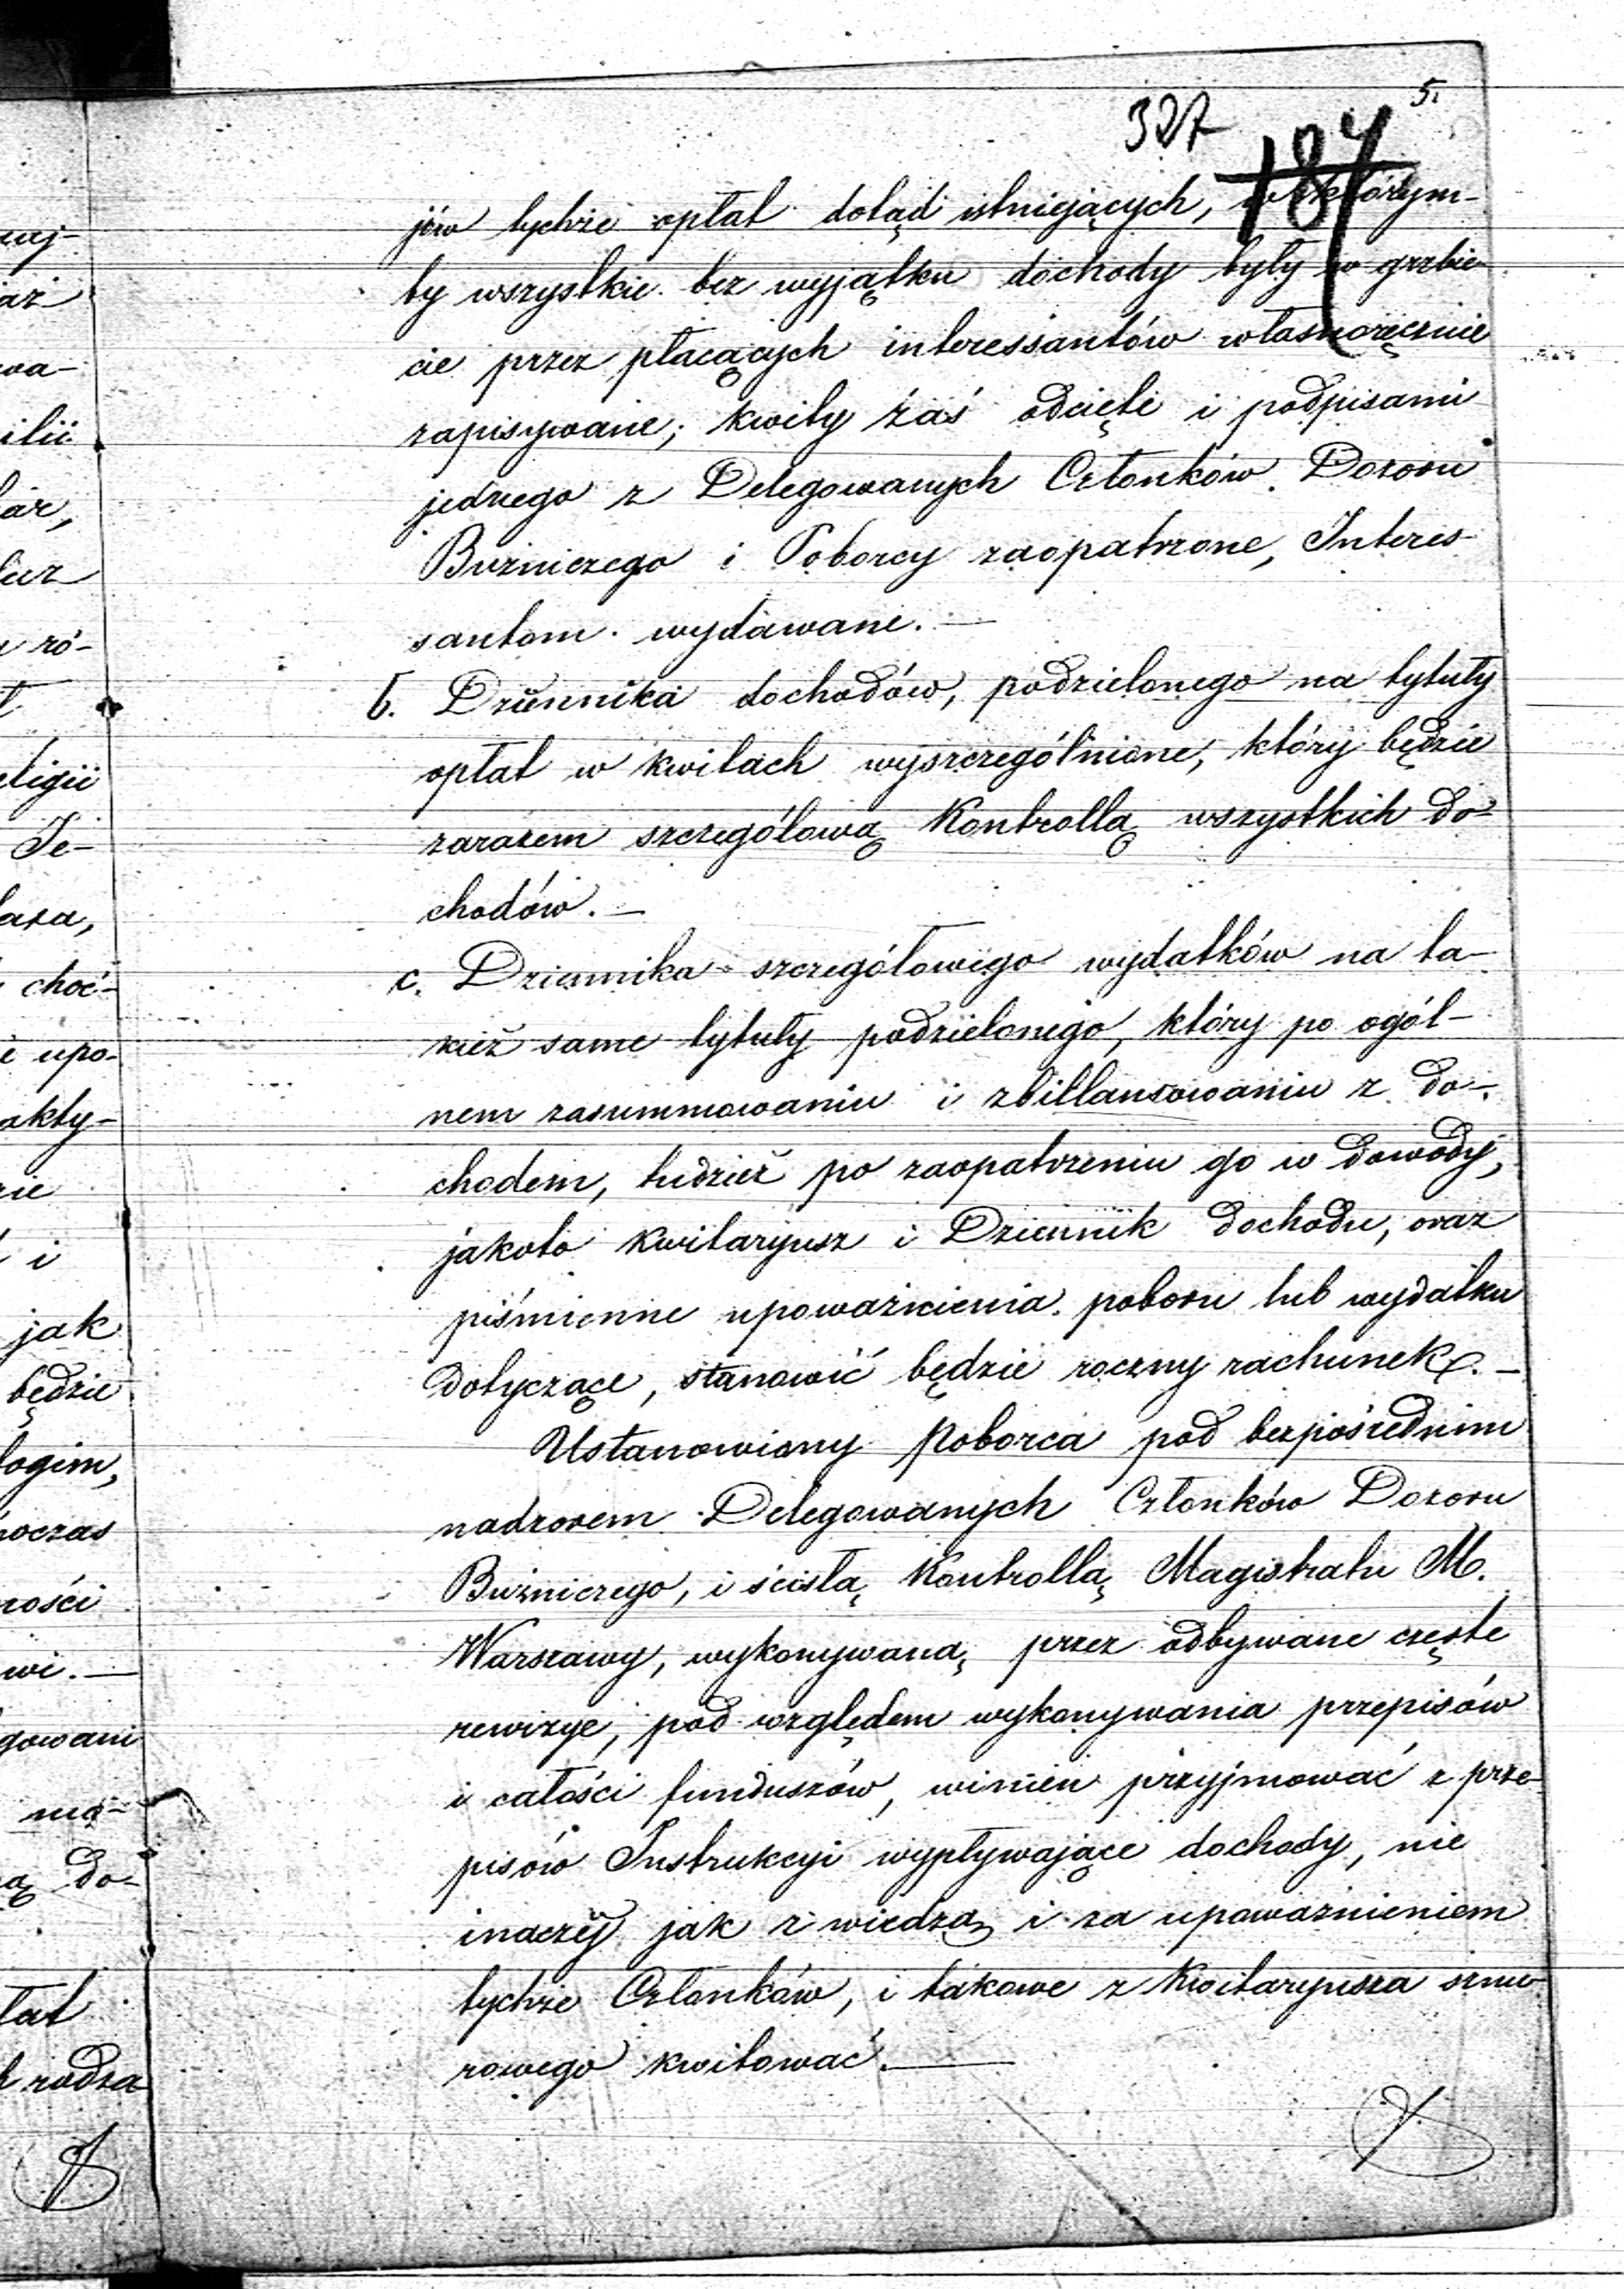 5.
327
184
jów tychże opłat dotąd istniejących, w którym-
by wszystkie bez wyjątku dochody były w grzbie-
cie przez płacących interessantów własnoręcznie
zapisywane; kwity zaś odcięte i podpisami
jednego z Delegowanych Członków Dozoru
Bużniczego i Poborcy zaopatrzone, Interes-
santom wydawane. —
b. Dziennika dochodów, podzielonego na tytuły
opłat w kwitach wyszczególnione, który będzie
zarazem szczegółową Kontrollą wszystkich do-
chodów. —
c. Dziennika szczegółowego wydatków na ta-
kież same tytuły podzielonego, który po ogól-
nem zasummowaniu i zbillansowaniu z do-
chodem, tudzież po zaopatrzeniu go w dowody,
jakoto Kwitaryusz i Dziennik dochodu, oraz
piśmienne upoważnienia poboru lub wydatku
dotyczące, stanowić będzie roczny rachunek. —
Ustanowiony Poborca pod bezpośrednim
nadzorem Delegowanych Członków Dozoru
Bużniczego, i ścisłą Kontrollą Magistratu M.
Warszawy, wykonywaną przez odbywane częste
rewizye, pod względem wykonywania przepisów
i całości funduszów, winien przyjmować z prze-
pisów Instrukcyi wypływające dochody, nie
inaczéj jak z wiedzą i za upoważnieniem
tychże Członków, i takowe z Kwitaryusza sznu-
rowego kwitować. —